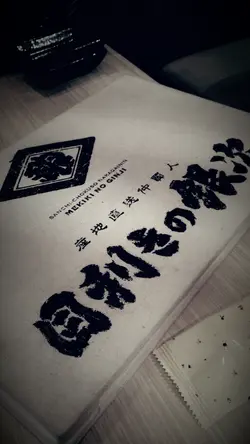 銀
SANCHI-CHOKUSO NAKAGAININ
MEKIKI NO GINJI
産地直送仲買人
目利きの銀次